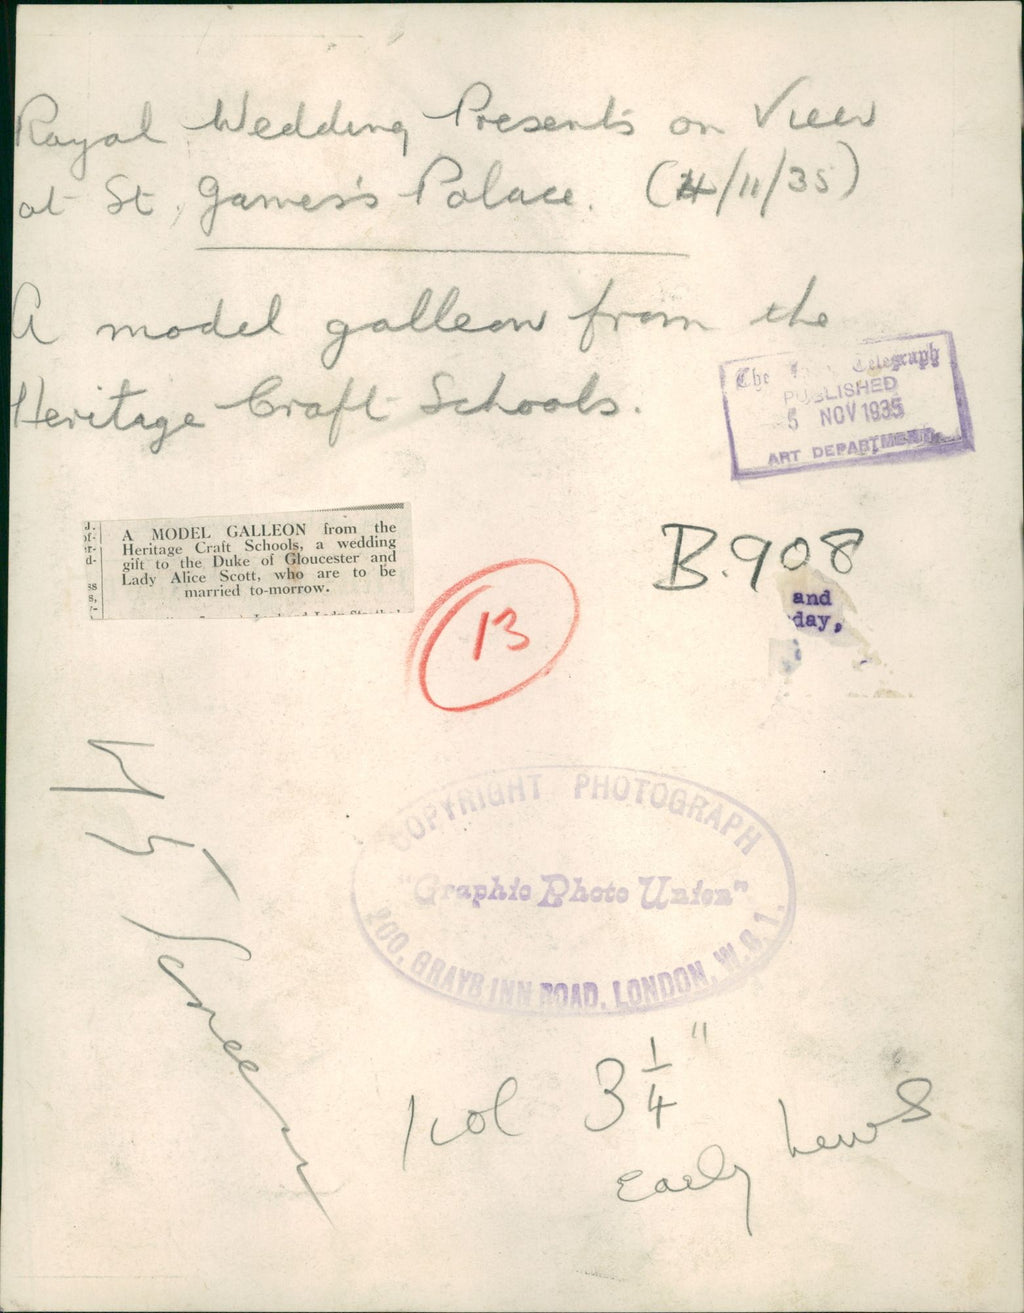 Royal Wedding Presents on View
at St. James's Palace. (4/11/35)
A model galleon from the
Heritage Craft Schools.
The Telegraph
PUBLISHED
5 NOV 1935
ART DEPARTMENT
A MODEL GALLEON from the
Heritage Craft Schools, a wedding
gift to the Duke of Gloucester and
Lady Alice Scott, who are to be
married to-morrow.
B.908
and
day,
13
COPYRIGHT PHOTOGRAPH
"Graphic Photo Union"
200, GRAYS INN ROAD, LONDON, W.C.1.
45 Screen
1 col 3 1/4"
Early News